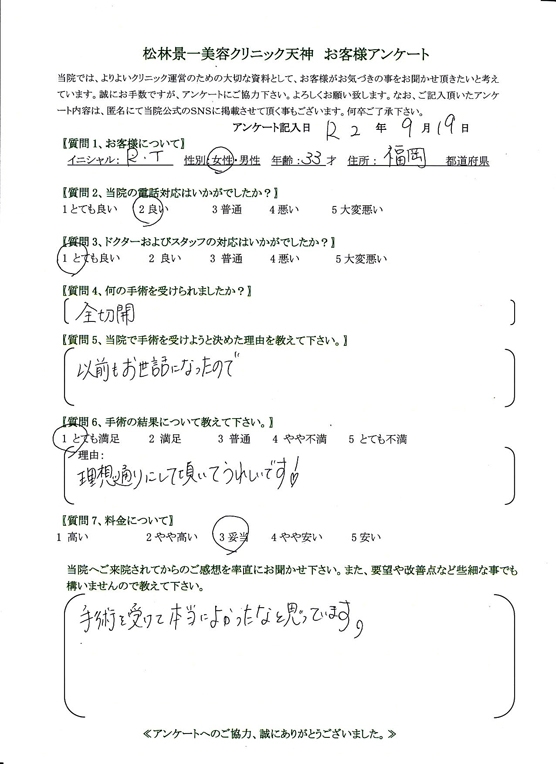 松林景一美容クリニック天神 お客様アンケート
当院では、よりよいクリニック運営のための大切な資料として、お客様がお気づきの事をお聞かせ頂きたいと考え
ています。誠にお手数ですが、アンケートにご協力下さい。よろしくお願い致します。なお、ご記入頂いたアンケ
ート内容は、匿名にて当院公式のSNSに掲載させて頂く事もございます。何卒ご了承下さい。
アンケート記入日 R2 年 9月19日
〖質問1、お客様について〗
イニシャル: R.T 性別:女性・男性 年齢:33才 住所: 福岡 都道府県
〖質問2、当院の電話対応はいかがでしたか?〗
1とても良い 2良い 3普通 4悪い 5大変悪い
〖質問3、ドクターおよびスタッフの対応はいかがでしたか?〗
1とても良い 2 良い 3 普通 4悪い 5大変悪い
〖質問4、何の手術を受けられましたか?〗
全切開
〖質問5、当院で手術を受けようと決めた理由を教えて下さい。〗
以前もお世話になったので
〖質問6、手術の結果について教えて下さい。〗
1 とても満足 2 満足 3 普通 4 やや不満 5 とても不満
理由:
理想通りにして頂いてうれしいです!
〖質問7、料金について〗
1 高い 2やや高い 3妥当 4やや安い 5安い
当院へご来院されてからのご感想を率直にお聞かせ下さい。また、要望や改善点など些細な事でも
構いませんので教えて下さい。
手術を受けて本当によかったなと思っています。
≪アンケートへのご協力、誠にありがとうございました。≫